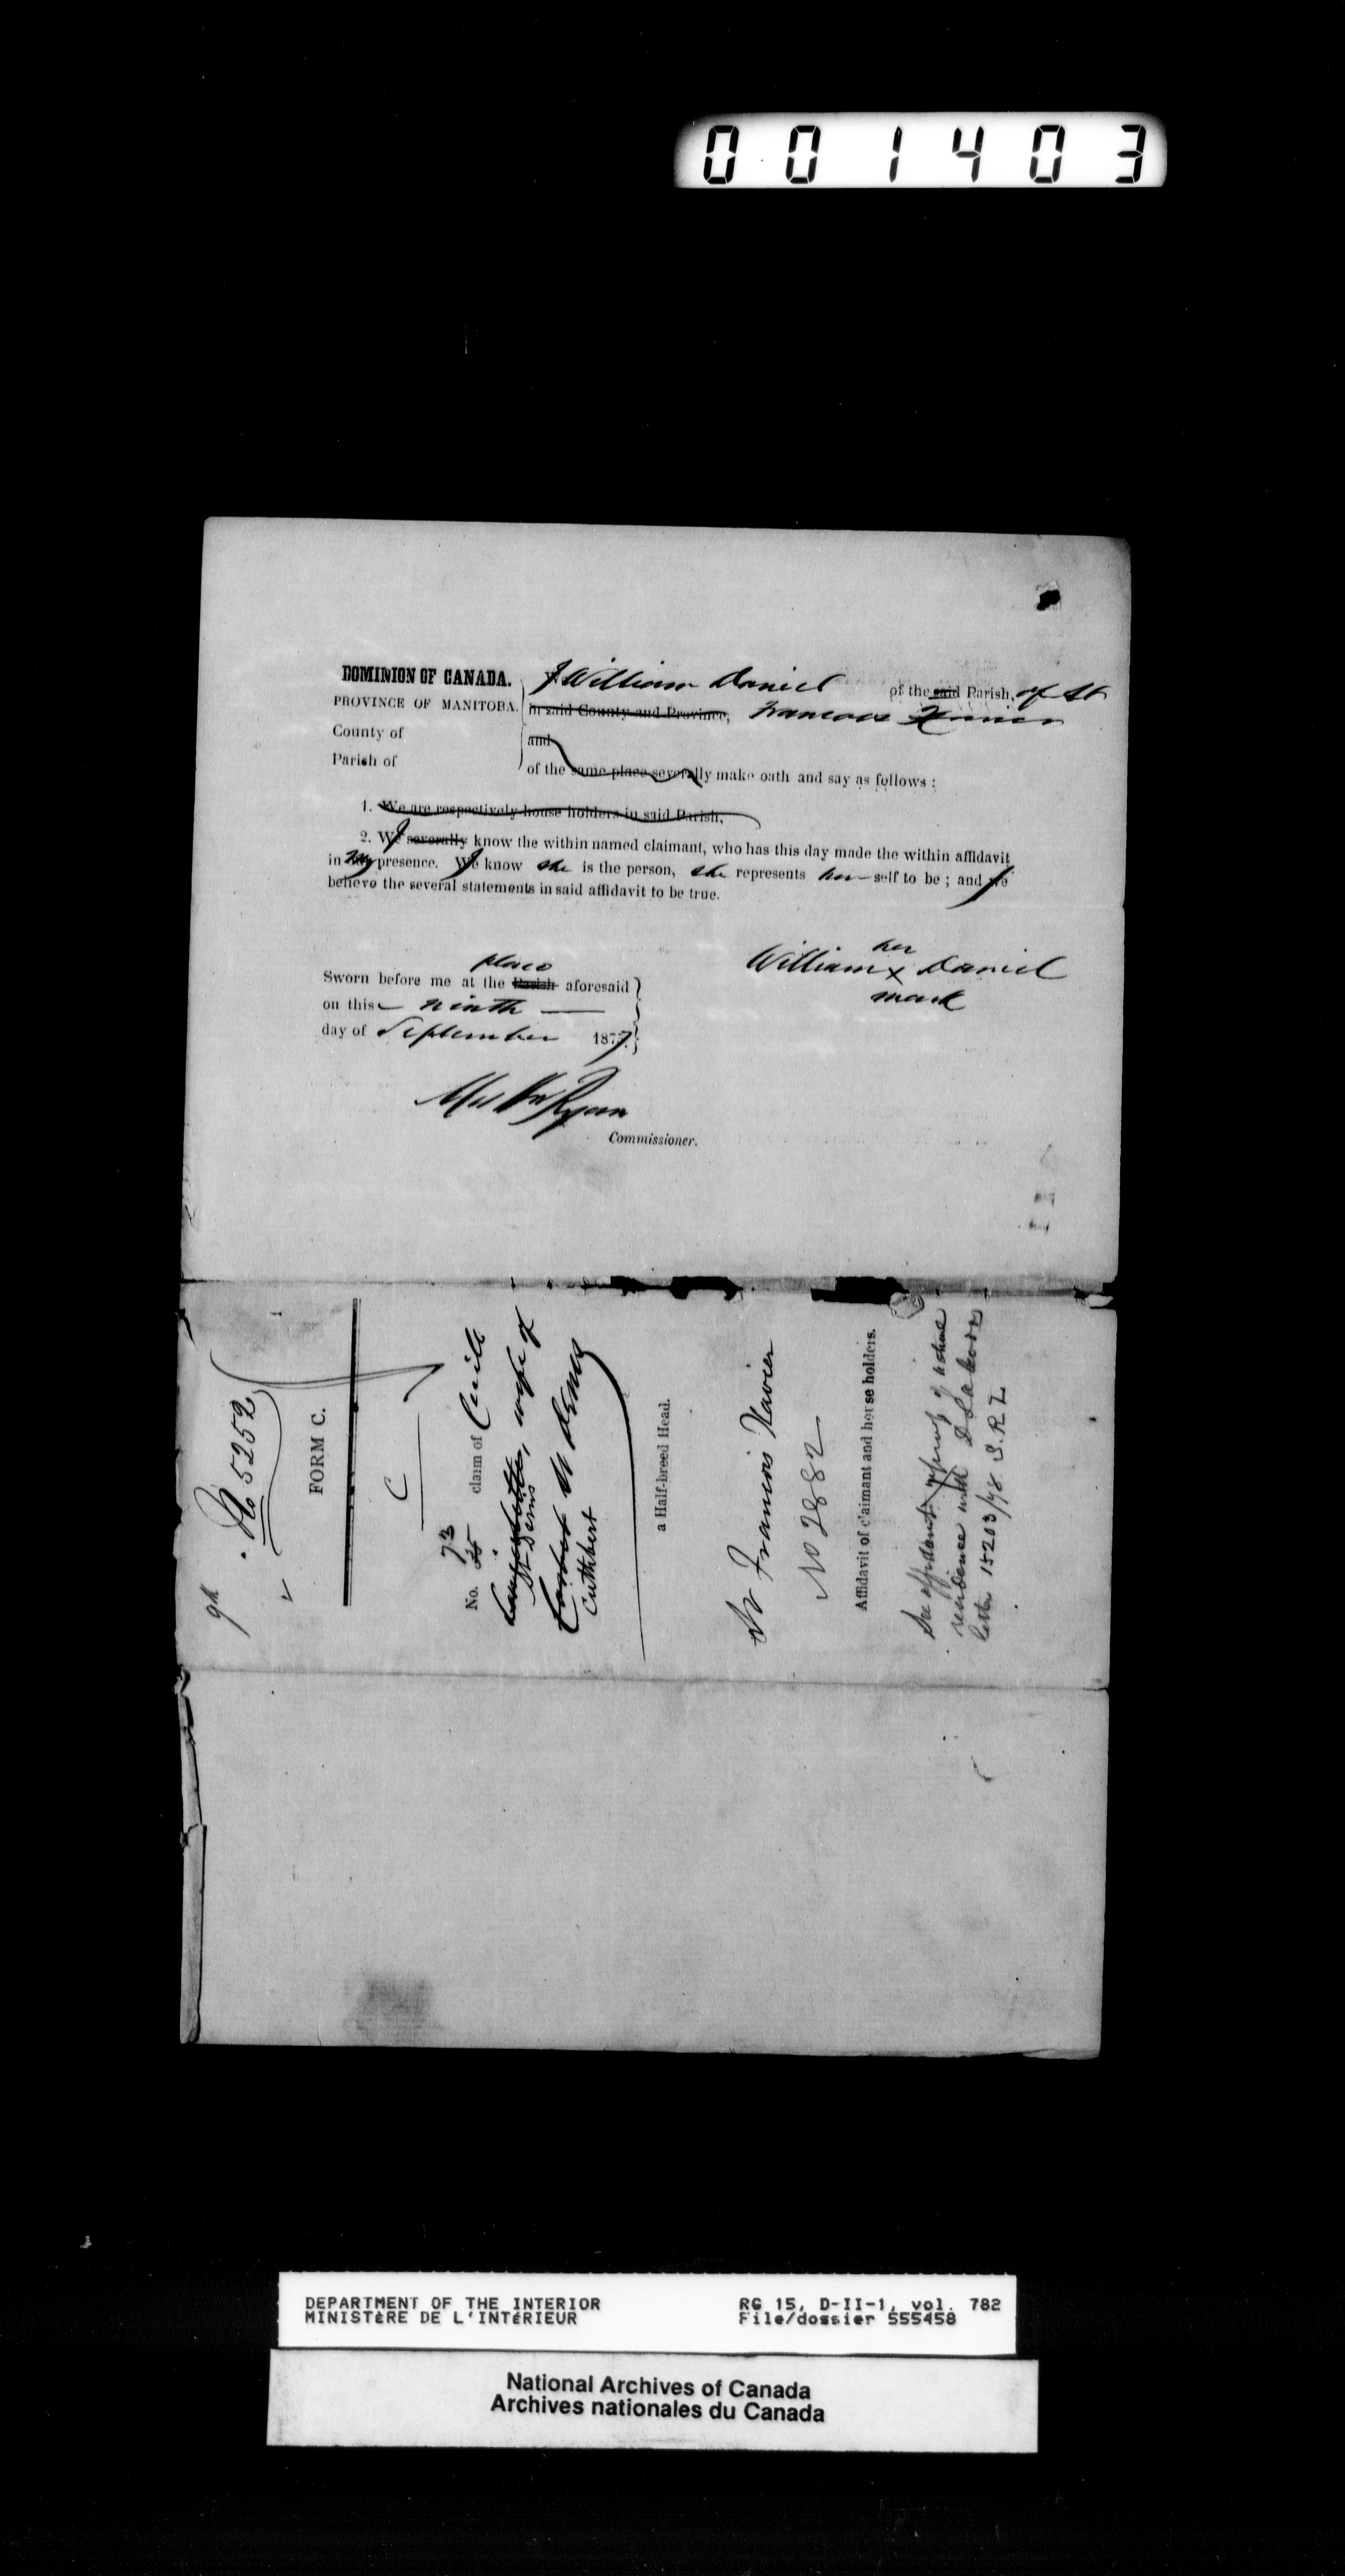 001403
DOMINION OF CANADA.
PROVINCE OF MANITOBA.
County of
Parish of
I William Daniel of the said Parish, of St
in said County and Province, Francois Xavier
and
of the same place severally make oath and say as follows :
1. We are respectively house holders in said Parish,
2. We I severally know the within named claimant, who has this day made the within affidavit
in my presence. We I know she is the person, she represents her self to be ; and we I
believe the several statements in said affidavit to be true.
place
Sworn before me at the Parish aforesaid
on this ninth
day of September 1877.
her
William x Daniel
mark
Ryan
Commissioner.
9th
No 5252
FORM C.
C
73
No. claim of Cecile
St Denis, wife of
W Demo
Cuthbert
a Half-breed Head.
St Francois Xavier
No 2882
Affidavit of claimant and house holders.
See affidavit of
residence with
letter 15203/98 S.R.L
DEPARTMENT OF THE INTERIOR
MINISTÈRE DE L'INTÉRIEUR
RG 15, D-II-1, vol. 782
File/dossier 555458
National Archives of Canada
Archives nationales du Canada